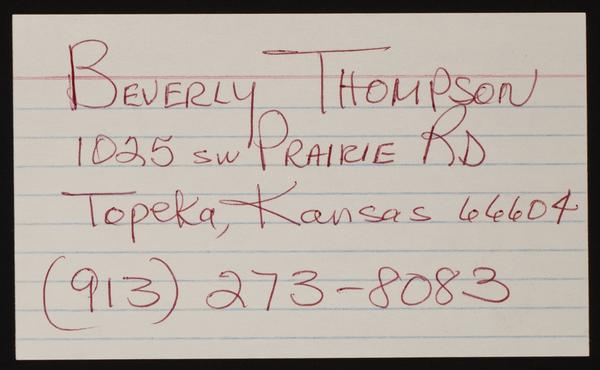 Beverly Thompson
1025 SW Prairie Rd
Topeka, Kansas 66604
(913) 273-8083